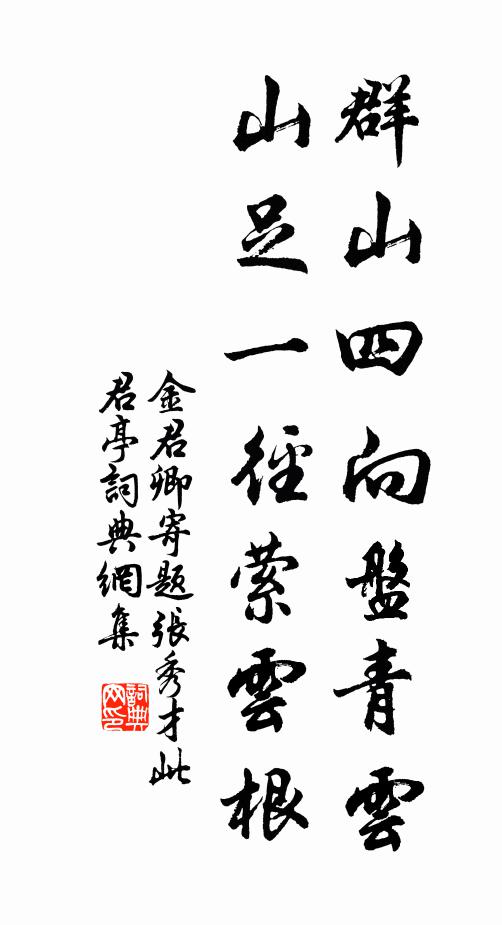 群山四向盤青雲
山足一徑縈雲根
金君卿寄題張秀才此
君亭詞典網集
詞典
网印